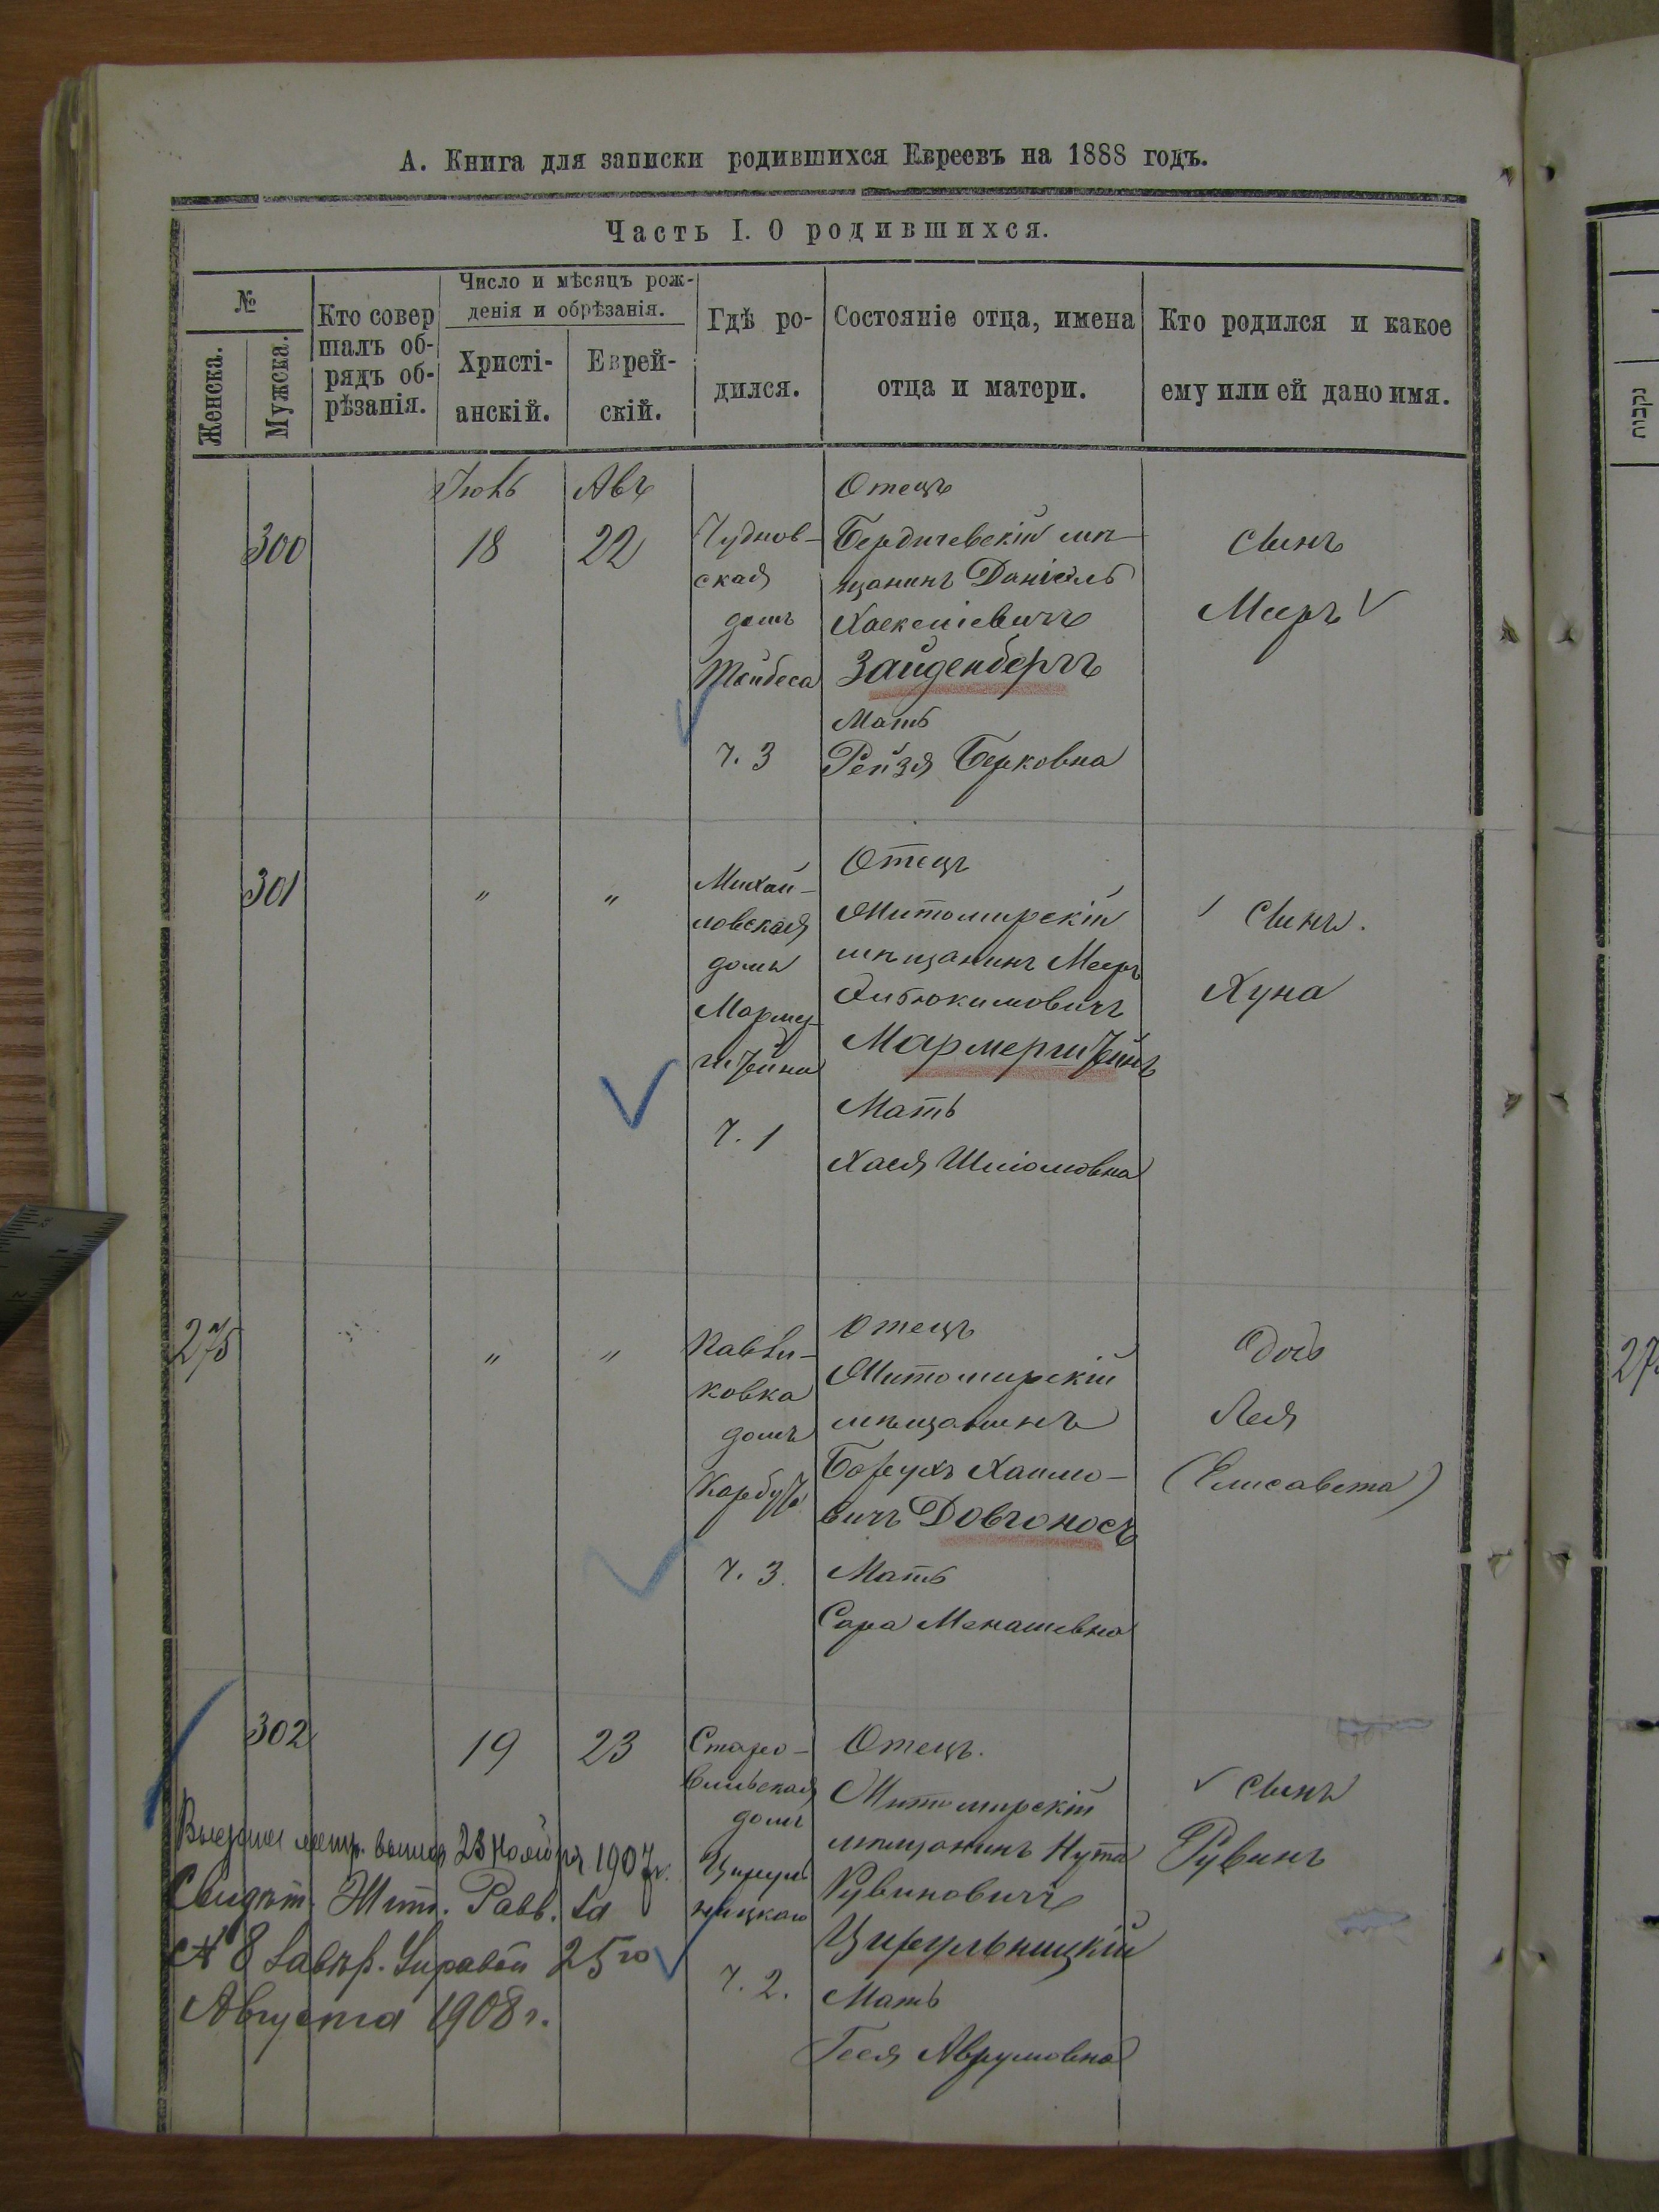 А. Книга для записки родившихся Евреевъ на 1888 годъ.
Часть I. О родившихся.
№
Женска.
Мужска.
Кто совер
шалъ об-
рядъ об-
рѣзанія.
Число и мѣсяцъ рож-
денія и обрѣзанія.
Христі-
анскій.
Еврей-
скій.
Гдѣ ро-
дился.
Состояніе отца, имена
отца и матери.
Кто родился и какое
ему или ей дано имя.
Авъ
300
18
22
Чуднов-
ская
домъ
ч. 3
Отецъ
Бердичевскій мѣ-
щанинъ Даніель
Зайденбергъ
Мать
Рейзя Берковна
Сынъ
Мееръ
301
"
"
Михай-
ловская
домъ
ч. 1
Отецъ
Житомирскій
мѣщанинъ Мееръ
Мармерштейнъ
Мать
Хася Шліомовна
Сынъ.
Хуна
275
"
"
ковка
домъ
ч. 3.
Отецъ
Житомирскій
мѣщанинъ
Борухъ Хаимо-
вичъ Довгоносъ
Мать
Сара Менашевна
Дочь
Лея
(Елисавета)
302
19
23
Старо-
вильская
домъ
Цируль
ницкаго
ч. 2.
Отецъ.
Житомирскій
мѣщанинъ Нута
Рувиновичъ
Цирульницкій
Мать
Геся Аврумовна
Сынъ
Рувинъ
метр. 23 Ноября 1907 г.
Свидѣт. Жит. Равв. за
№ 8 25го
Августа 1908 г.
נקבות
27